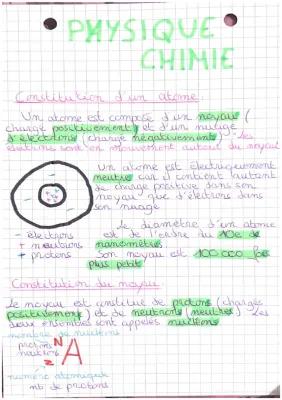 PHYSIQUE
CHIMIE
Constitution d'un atome.
Un atome est composé d'un noyau (
chargé positivement) et d'un nuage
d'électrons (chargé négativement). les
électrons sont en mouvement autour du noyau
Un atome est électriquement
neutre car il contient autant
de charge positive dans son
noyau que d'électrons dans
son nuage
Le diamètre d'un atome
- électrons est de l'ordre du 10e de
+ neutrons nanomètre.
+ protons Son noyau est 100 000 fois
plus petit
Constitution du noyau
Le noyau est constitué de protons (chargés
positivement) et de neutrons (neutres). Les
deux ensembles sont appelés nucléons
nombre de nucléons
protons N
neutrons A
Z
numéro atomique
nb de protons